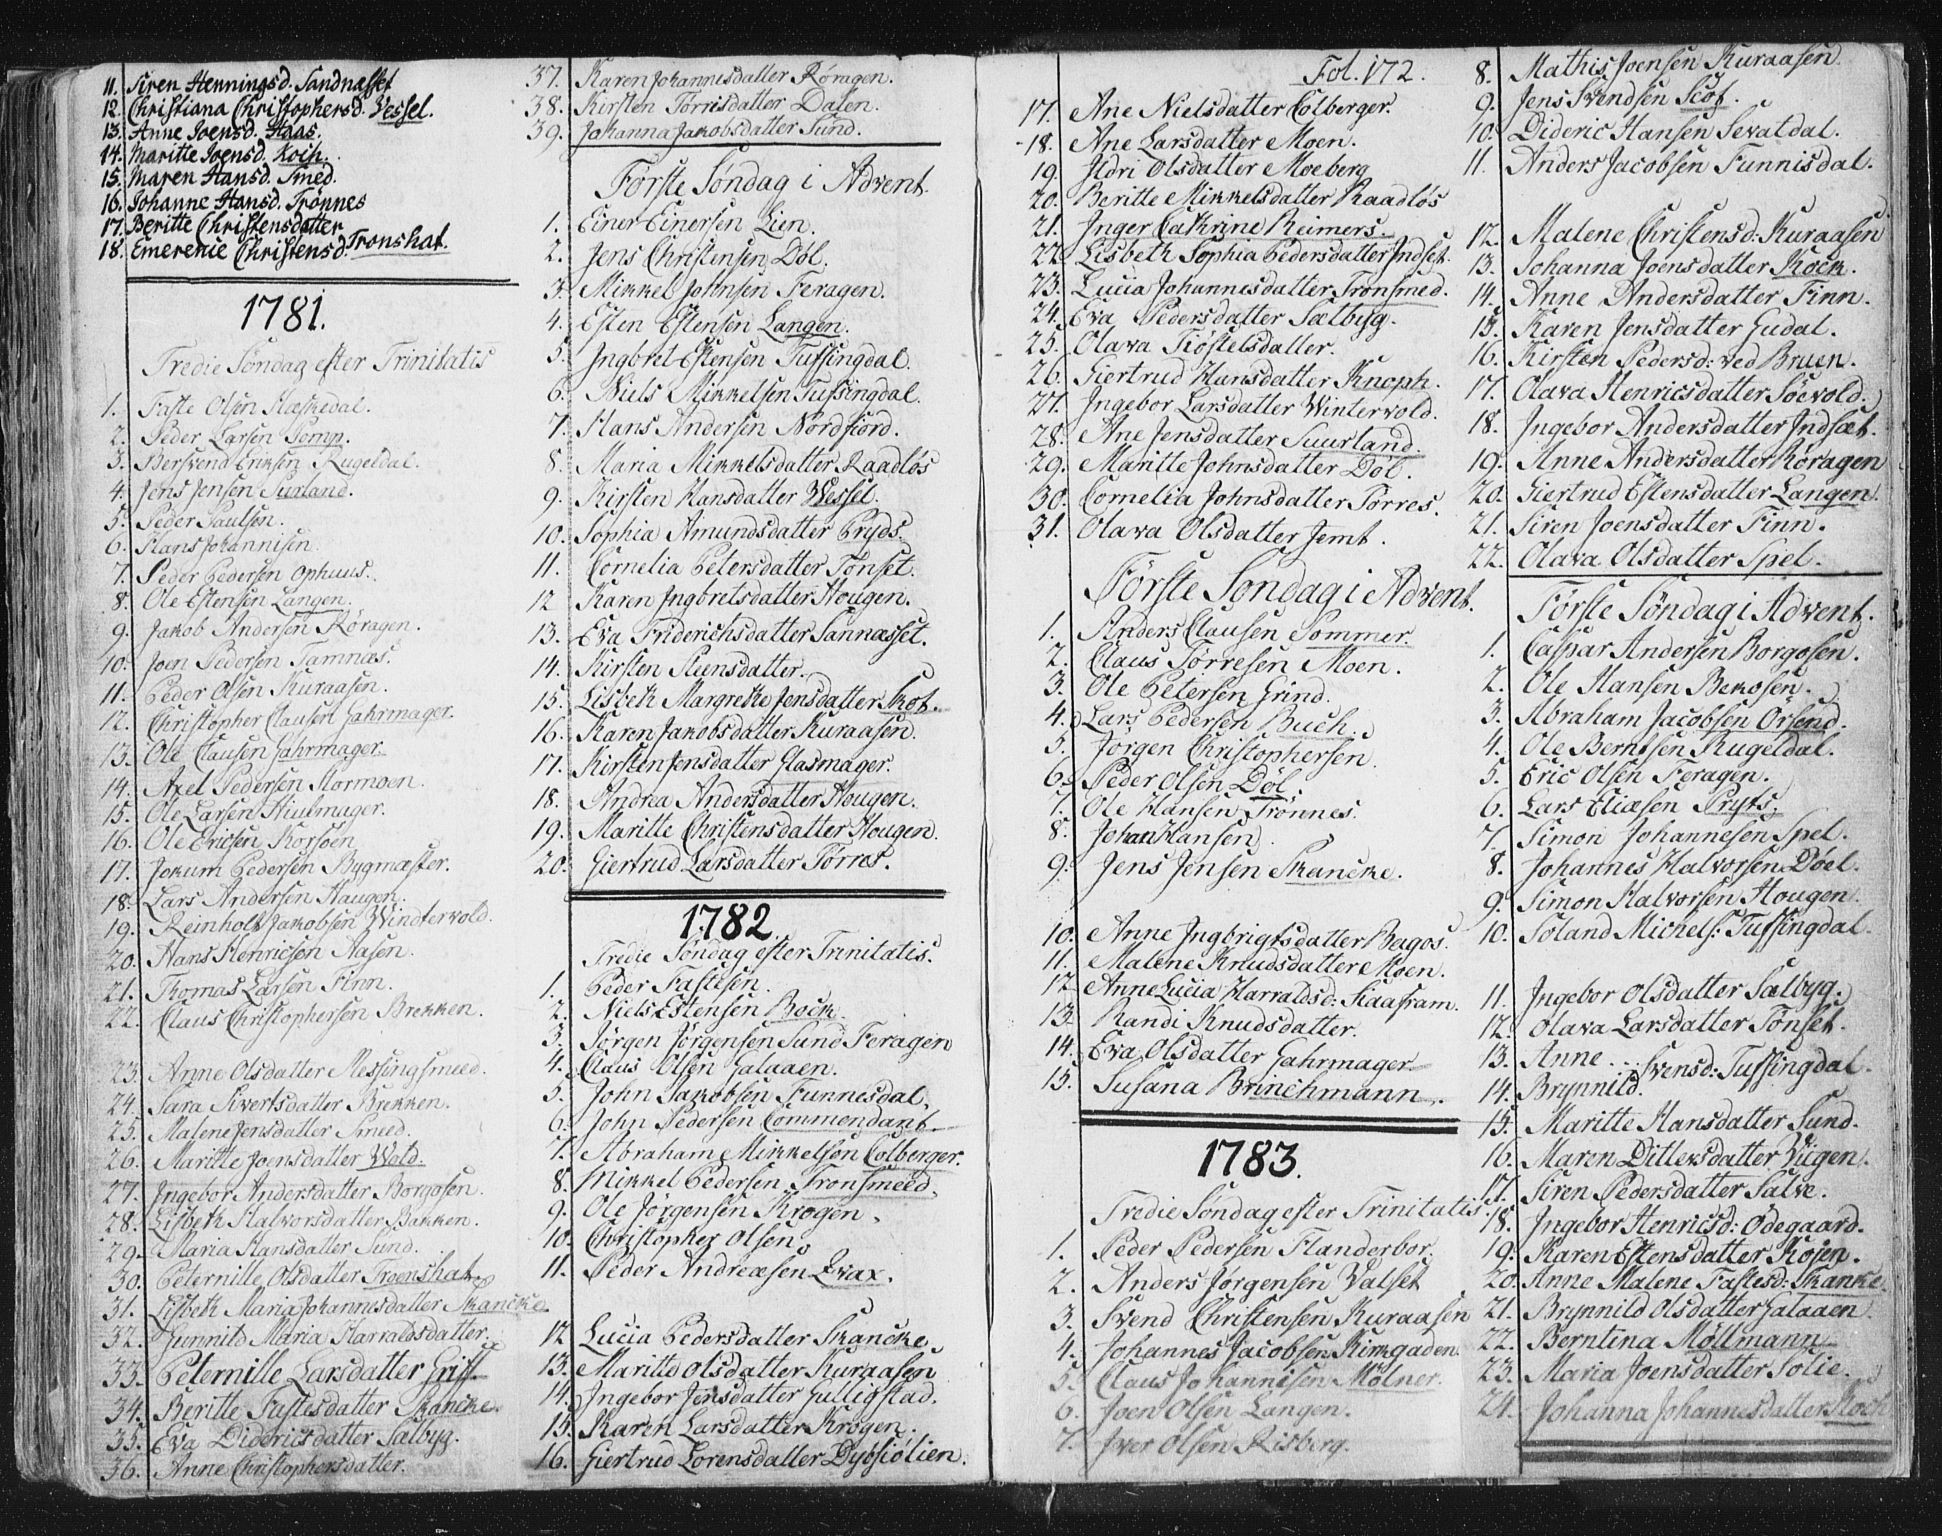 11. Siren Henningsd. Sandnasset
12. Christiana Christophersd. Vessel.
13. Anne Joensd. Haas.
14. Maritte Joensd. Koch.
15. Maren Hansd. Smed.
16. Johanne Hansd. Trønnes
17. Beritte Christensdatter
18. Emerence Christensd: Tronshat.
1781.
Tredie Søndag efter Trinitatis
1. Faste Olsen
2. Peder Larsen Tomp.
3. Bersvend Eriksen Rugeldal.
4. Jens Jensen Surland.
5. Peder Paulsen.
6. Hans Johannisen.
7. Peder Pedersen Ophuus.
8. Ole Estensen Langen.
9. Jakob Andersen Røragen.
10. Joen Pedersen Tamnæs.
11. Peder Olsen Kuraasen.
12. Christopher Clausen Gahrmager.
13. Ole Clausen Gahrmager.
14. Axel Pedersen Stormoen.
15. Ole Larsen Hiulmager.
16. Ole Ericsen Korsoen
17. Jokum Pedersen Bygmæster.
18. Lars Andersen Haugen.
19. Reinholt Jakobsen Windtervold.
20. Hans Henricsen Aasen.
21. Thomas Larsen Finn.
22. Claus Christophersen Brekken.
23. Anne Olsdatter Messingsmeed.
24. Sara Sivertsdatter Brekken.
25. Malene Jensdatter Smeed.
26. Maritte Joensdatter Wold.
27. Ingebor Andersdatter Borgosen.
28. Lisbeth Halvorsdatter Bakken.
29. Maria Hansdatter Sund.
30. Peternille Olsdatter Troenshat.
31. Lisbeth Maria Johannesdatter Skancke.
32. Gunnild Maria Harraldsdatter.
33. Peternille Larsdatter Grift
34. Beritte Fastesdatter Skancke.
35. Eva Didericsdatter Sælbyg.
36. Anne Christophersdatter.
37. Karen Johannisdatter Røragen.
38. Kirsten Törrisdatter Dalen.
39. Johanna Jakobsdatter Sund.
Förste Søndag i Advent.
1. Einer Einersen Lien.
2. Jens Christensen Döl.
3. Mikkel Johnsen Feragen.
4. Esten Estensen Langen.
5. Ingbret Estensen Tufsingdal.
6. Niels Mikkelsen Tufsingdal.
7. Hans Andersen Nordfiord.
8. Maria Mikkelsdatter Raadlös
9. Kirsten Hansdatter Wessel.
10. Sophia Amundsdatter Pryds.
11. Cornelia Petersdatter Tønset.
12 Karen Ingbretsdatter Hougen.
13. Eva Friderichsdatter Sannæsset.
14. Kirsten Stensdatter.
15. Lisbeth Margrethe Jensdatter Skot.
16. Karen Jakobsdatter Kuraasen.
17. Kirsten Jensdatter Glasmager.
18. Andrea Andersdatter Hougen.
19. Maritte Christensdatter Hougen.
20. Giertrud Larsdatter Törres.
1782.
Tredie Søndag efter Trinitatis.
1. Peder Fastesen.
2. Niels Estensen Bock.
3. Jørgen Jørgensen Sund Feragen
4. Claus Olsen Galaaen.
5. John Jakobsen Funnesdal.
6. John Pedersen Commendant.
7. Abraham Mikkelsen Colberger.
8. Mikkel Pedersen Tronsmeed.
9. Ole Jörgensen Krogen.
10. Christopher Olsen.
11. Peder Andreasen Qvax.
12 Lucia Pedersdatter Skancke.
13. Maritte Olsdatter Kuraasen
14. Ingebor Jensdatter Gulligstad.
15. Karen Larsdatter Krogen.
16. Giertrud Lorensdatter Dybsiölien.
Fol. 172.
17. Ane Nielsdatter Colberger.
18. Ane Larsdatter Moen.
19. Ildri Olsdatter Moeberg
20. Beritte Mikkelsdatter Raadløs
21. Inger Cathrine Reimers.
22. Lisbeth Sophia Pedersdatter Indset.
23. Lucia Johannisdatter Tronsmed.
24. Eva Pedersdatter Sælbyg.
25. Olava Tiöstelsdatter.
26. Giertrud Hansdatter Knoph.
27. Ingebor Larsdatter Wintervold.
28. Ane Jensdatter Suurland.
29. Maritte Johnsdatter Döl.
30. Cornelia Johnsdatter Törres.
31. Olava Olsdatter Jemt.
Förste Søndag i Advent.
1. Anders Clausen Sommer.
2. Claus Törresen Moen.
3. Ole Petersen Grind.
4. Lars Pedersen Buch.
5. Jörgen Christophersen.
6. Peder Olsen Döl.
7. Ole Hansen Trönnes.
8. Johan Hansen.
9. Jens Jensen Skancke.
10. Anne Ingbrigtsdatter Bagos.
11. Malene Knudsdatter Moen.
12 Anne Lucia Harraldsd: Skaafram.
13. Randi Knudsdatter.
14. Eva Olsdatter Gahrmager
15. Susana Brinchmann.
1783.
Tredie Søndag efter Trinitatis.
1. Peder Pedersen Flanderbor.
2. Anders Jørgensen Valset
3. Svend Christensen Kuraasen
4. Johannes Jacobsen
5. Claus Johannesen Mölner.
6. Joen Olsen Langen.
7. Iver Olsen Risberg.
8. Mathis Joensen Kuraasen.
9. Jens Svendsen Scot.
10. Dideric Hansen Sevatdal.
11. Anders Jacobsen Funnisdal.
12. Malene Christensd: Kuraasen
13. Johanna Joensdatter Kock.
14. Anne Andersdatter Finn.
15. Karen Jensdatter Gudal.
16. Kirsten Pedersd: ved Bruen.
17. Olava Henricsdatter Söevold.
18. Ingebor Andersdatter Indsæt.
19. Anne Andersdatter Røragen
20. Giertrud Estensdatter Langen.
21. Siren Joensdatter Finn.
22. Olava Olsdatter Spel.
Förste Söndag i Advent.
1. Caspar Andersen Borgosen.
2. Ole Hansen Bekosen.
3. Abraham Jacobsen Örsend.
4. Ole Berntsen Rugeldal.
5. Eric Olsen Feragen.
6. Lars Eliæsen Pryts.
7. Simon Johannesen Spel.
8. Johannes Halvorsen Döel.
9. Simon Halvorsen Hougen.
10. Soland Michels: Tufsingdal.
11. Ingebor Olsdatter Sælbyg.
12. Olava Larsdatter Tönset.
13. Anne ... Svensd: Tufsingdal.
14. Brynnild.
15. Maritte Hansdatter Sund.
16. Maren Ditlevsdatter Viigen.
17. Siren Pedersdatter Salve.
18. Ingebor Henricsd: Ödegaard.
19. Karen Estensdatter Kojen.
20. Anne Malene Fastesd: Skancke.
21. Brynnild Olsdatter Galaaen
22. Berntina Möllmann
23. Maria Joensdatter Solie.
24. Johanna Johannesdatter Koch